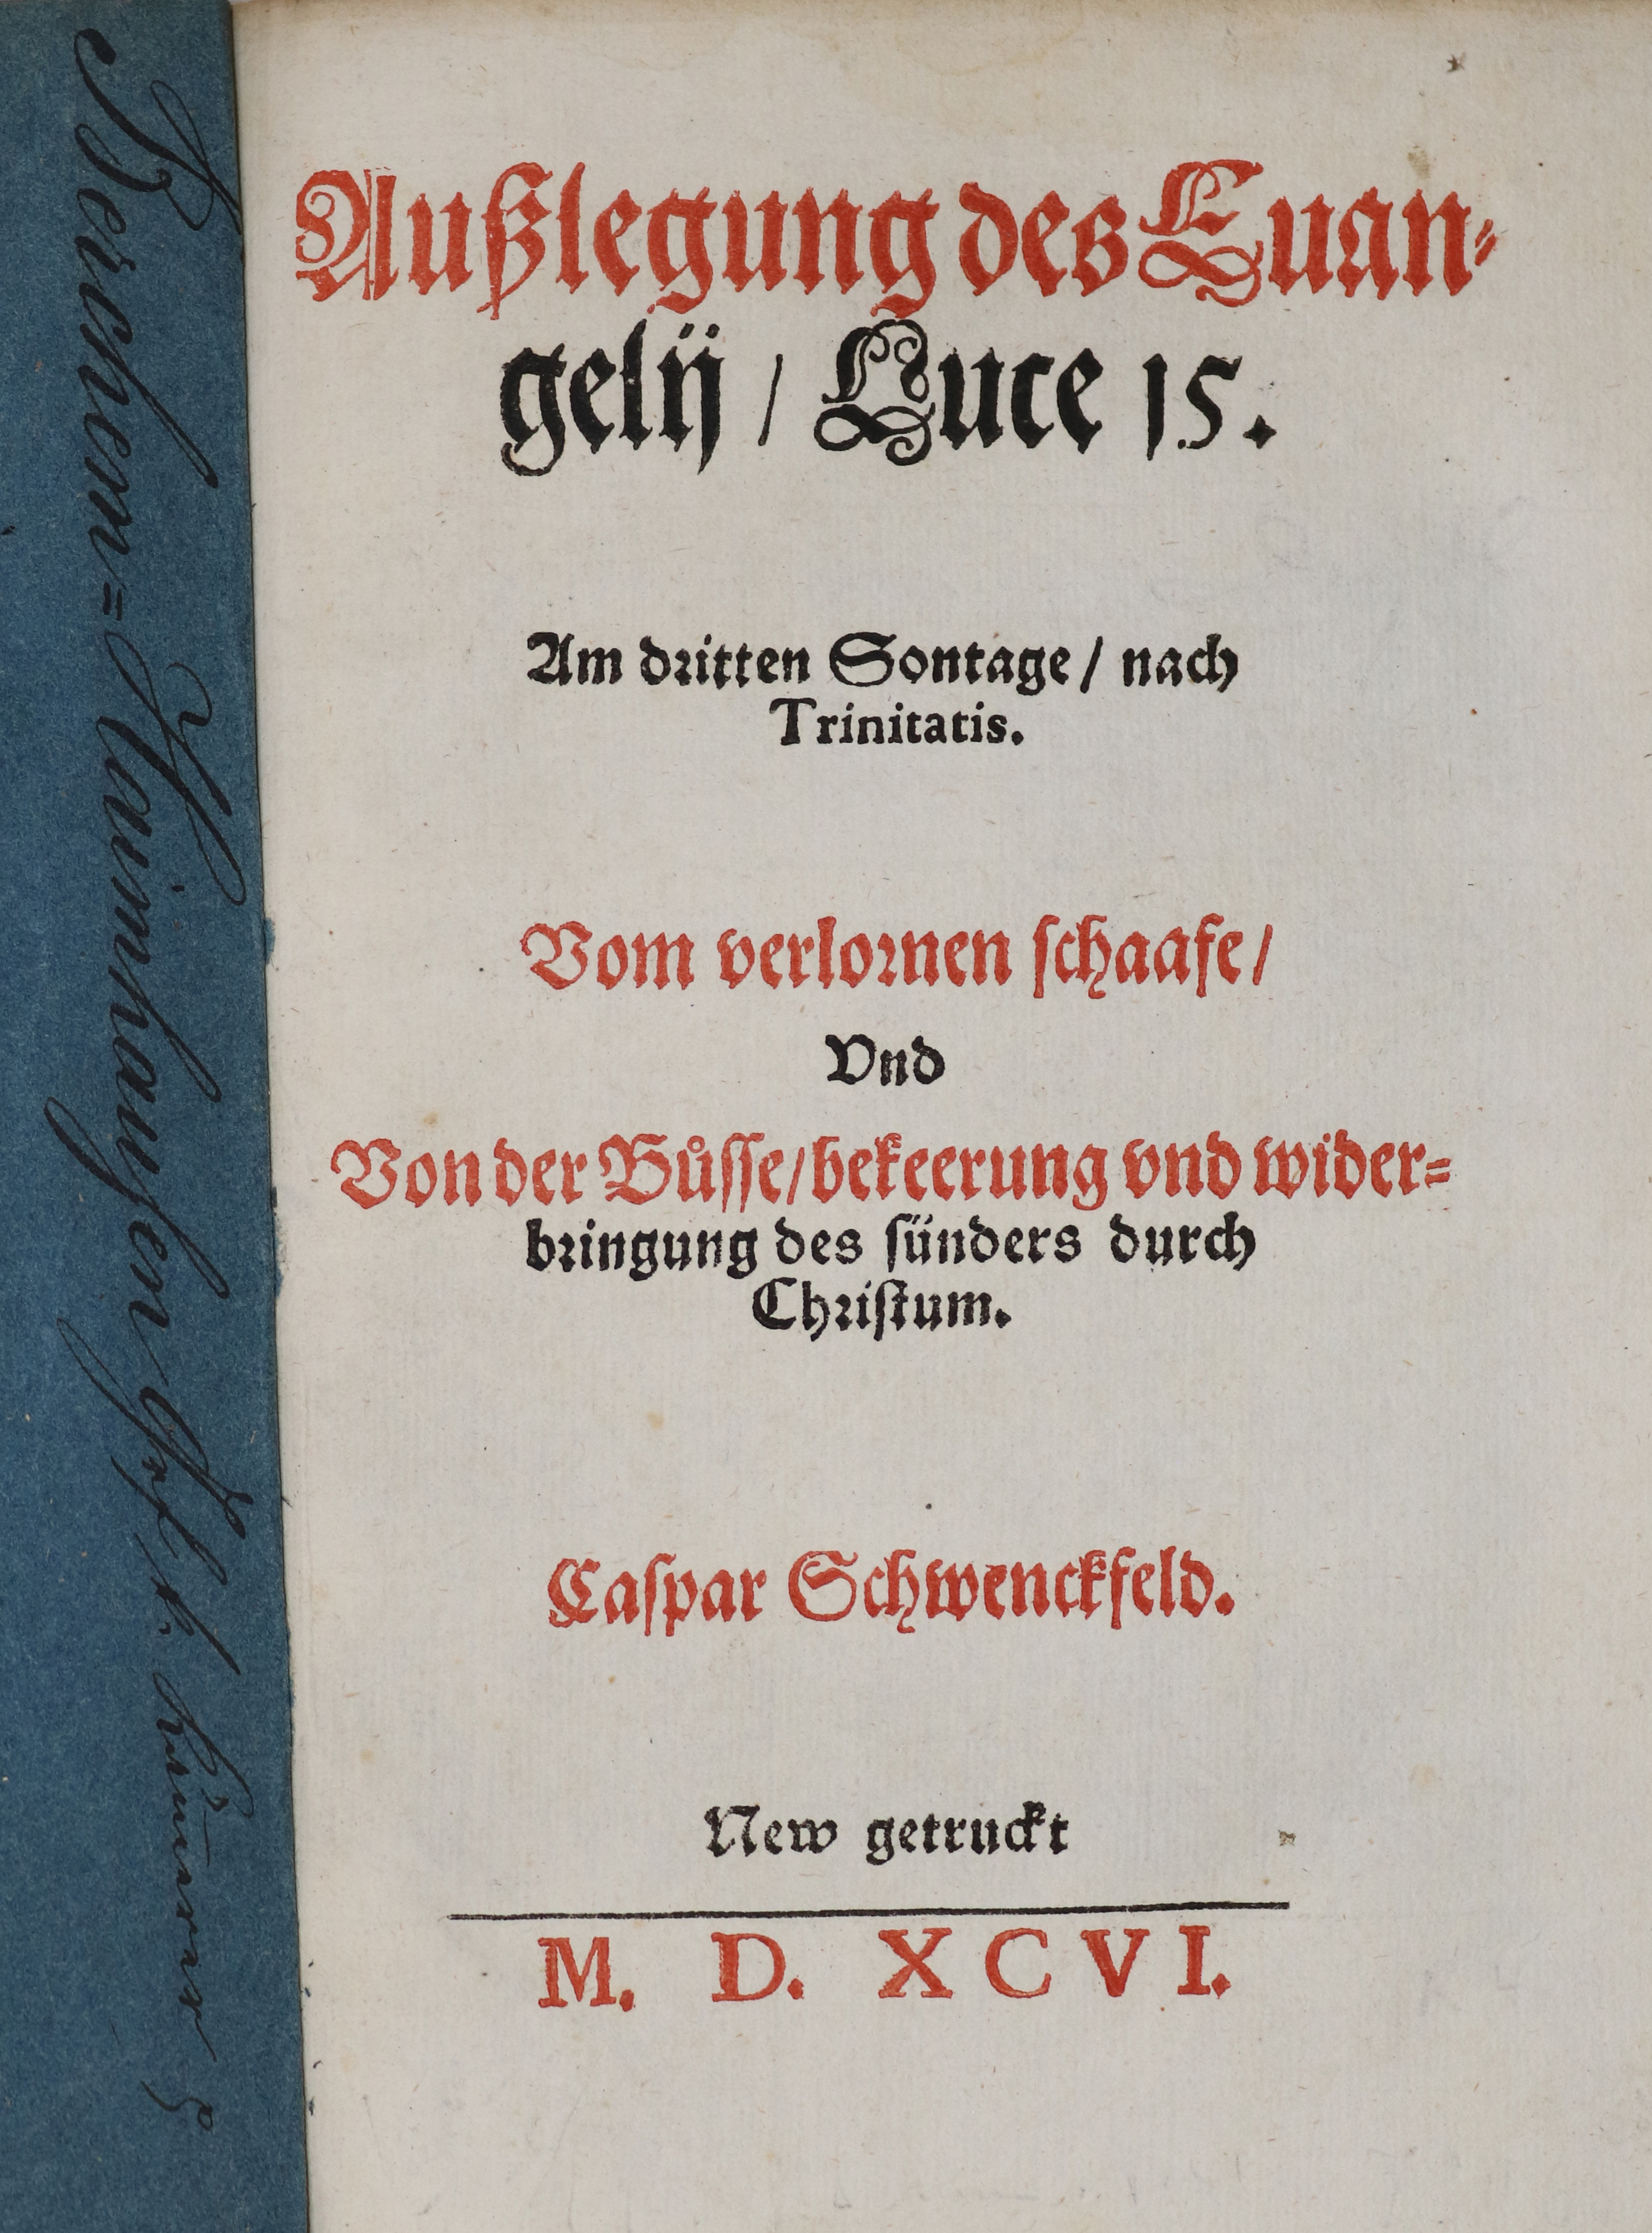 Außlegung des Euan-
gelij / Luce 15.
Am dritten Sontage / nach
Trinitatis.
Vom verlornen schaafe /
Vnd
Von der Bůsse / bekeerung vnd wider=
bringung des sünders durch
Christum.
Caspar Schwenckfeld.
New getruckt
M. D. XCVI.